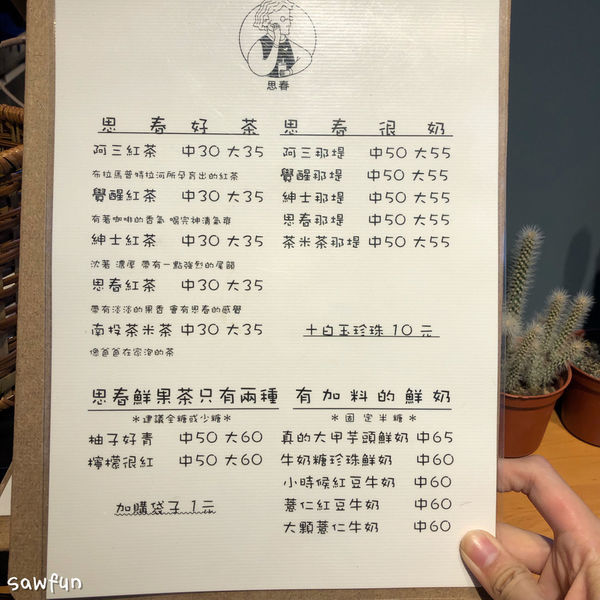 思春
思春好茶
阿三紅茶 中30 大35
布拉馬普特拉河所孕育出的紅茶
覺醒紅茶 中30 大35
有著咖啡的香氣 喝完神清氣爽
紳士紅茶 中30 大35
沈著 濃厚 帶有一點強烈的尾韻
思春紅茶 中30 大35
帶有淡淡的果香 會有思春的感覺
南投茶米茶 中30 大35
像爸爸在家泡的茶
思春很奶
阿三那堤 中50 大55
覺醒那堤 中50 大55
紳士那堤 中50 大55
思春那堤 中50 大55
茶米茶那堤 中50 大55
+白玉珍珠 10 元
思春鮮果茶只有兩種
*建議全糖或少糖*
柚子好青 中50 大60
檸檬很紅 中50 大60
加購袋子 1元
有加料的鮮奶
*固定半糖*
真的大甲芋頭鮮奶 中65
牛奶糖珍珠鮮奶 中60
小時候紅豆牛奶 中60
薏仁紅豆牛奶 中60
大顆薏仁牛奶 中60
sawfun